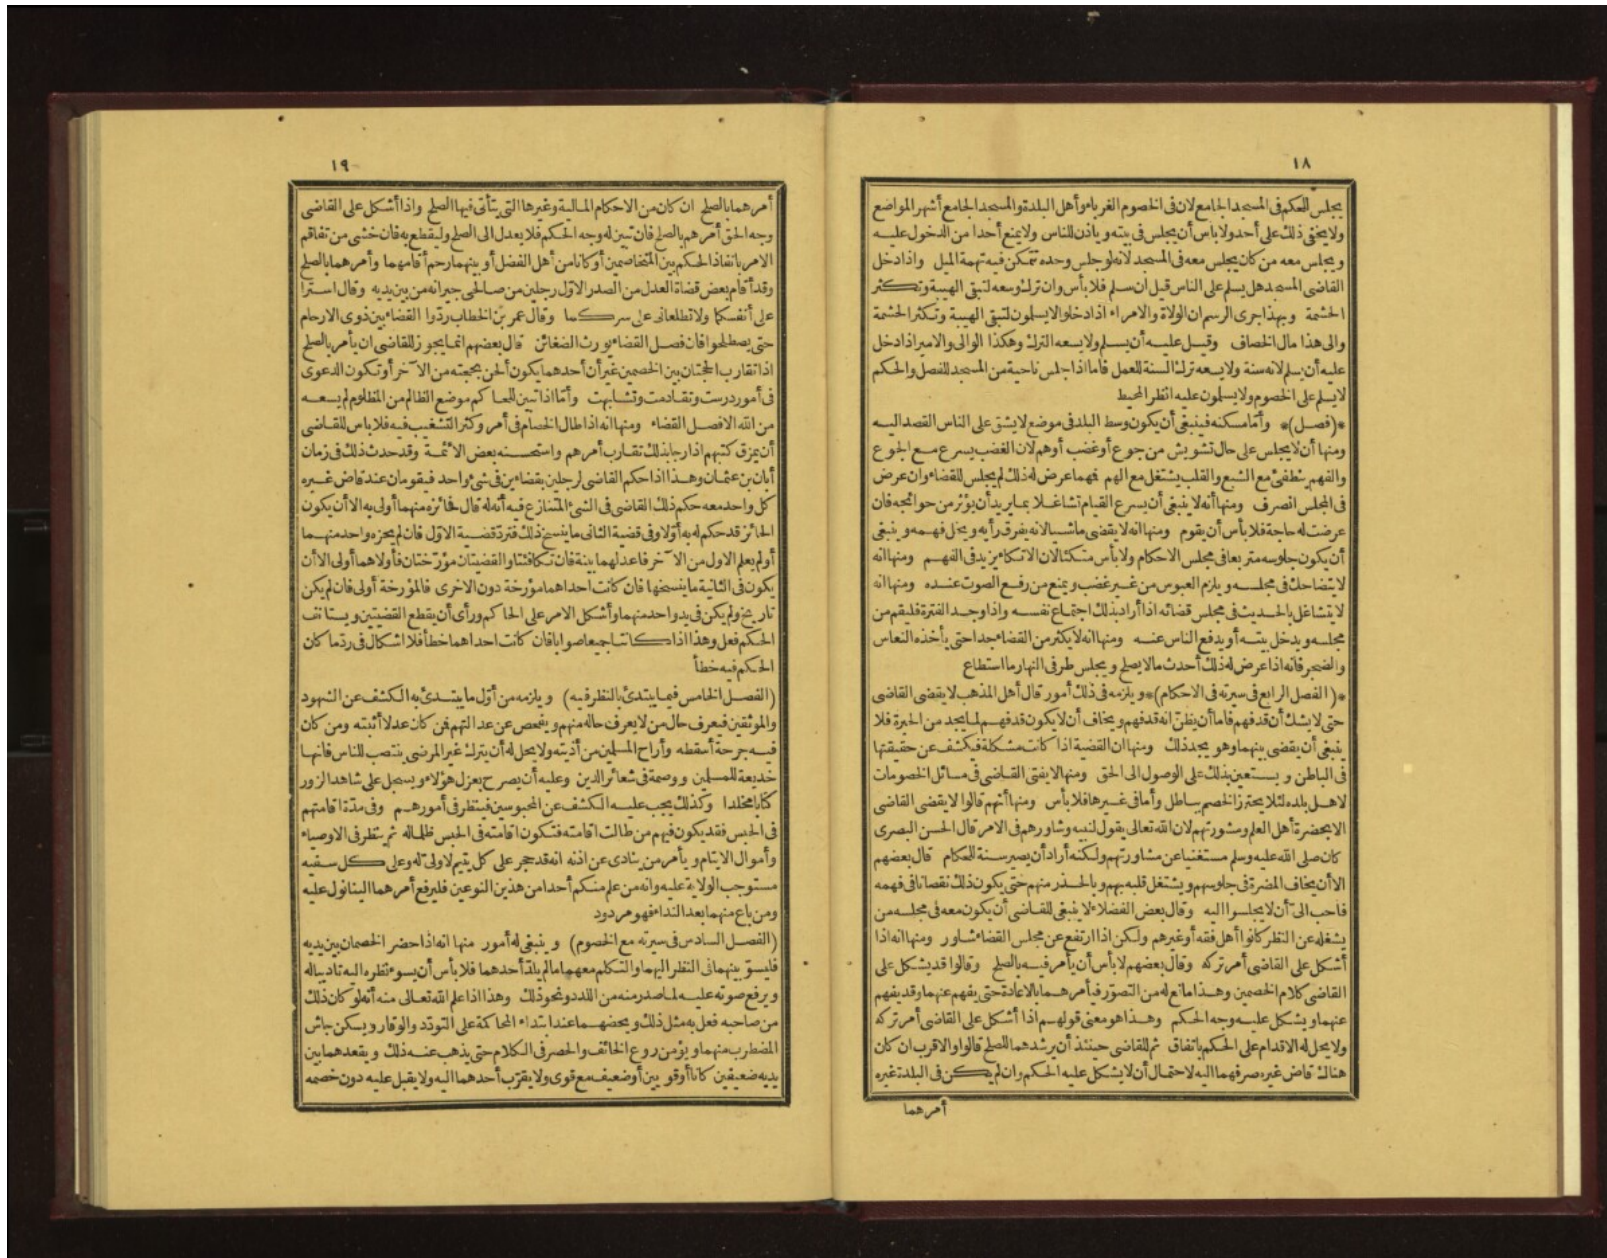 ١٨
يجلس للحكم في المسجد الجامع لان في الخصوم الغرباء وأهل البلدة والمسجد الجامع أشهر المواضع
ولا يخفى ذلك على أحد ولا بأس أن يجلس في بيته ويأذن للناس ولا يمنع أحدا من الدخول عليه
ويجلس معه من كان يجلس معه في المسجد لانه لو جلس وحده تتمكن فيه تهمة الميل واذا دخل
القاضي المسجد هل يسلم على الناس قيل ان سلم فلا بأس وان ترك وسعه لتبقى الهيبة وتكثر
الحشمة وبهذا جرى الرسم ان الولاة والامراء اذا دخلوا لا يسلمون لتبقى الهيبة وتكثر الحشمة
والى هذا مال الخصاف وقيل عليه أن يسلم ولا يسعه الترك وهكذا الوالى والامير اذا دخل
عليه أن يسلم لانه سنة ولا يسعه ترك السنة للعمل فاما اذا جلس ناحية من المسجد للفصل والحكم
لا يسلم على الخصوم ولا يسلمون عليه انظر المحيط
*(فصل)* وأما مسكنه فينبغي أن يكون وسط البلد في موضع لا يشق على الناس القصد اليه
ومنها أن لا يجلس على حال تشويش من جوع أو غضب أو هم لان الغضب يسرع مع الجوع
والفهم ينطفئ مع الشبع والقلب يشتغل مع الهم فهما عرض له ذلك لم يجلس للقضاء وان عرض
في المجلس انصرف ومنها أنه لا ينبغي أن يسرع القيام تشاغلا بما يريد أن يؤثر من حوائجه فان
عرضت له حاجة فلا بأس أن يقوم ومنها انه لا يقضى ماشيا لانه يفرق رأيه ويخل فهمه وينبغي
أن يكون جلوسه متربعا في مجلس الاحكام ولا بأس متكئا لان الاتكاء يزيد في الفهم ومنها انه
لا يتضاحك في مجلسه ويلزم العبوس من غير غضب ويمنع من رفع الصوت عنده ومنها انه
لا يتشاغل بالحديث في مجلس قضائه اذا أراد بذلك اجتماع نفسه واذا وجد الفترة فليقم من
مجلسه ويدخل بيته أو يدفع الناس عنه ومنها انه لا يكثر من القضاء جدا حتى يأخذه النعاس
والضجر فانه اذا عرض له ذلك أحدث ما لا يصلح ويجلس طرفى النهار ما استطاع
*(الفصل الرابع في سيرته في الاحكام)* ويلزمه في ذلك أمور قال أهل المذهب لا يقضى القاضى
حتى لا يشك أن قد فهم فاما أن يظن انه قد فهم ويخاف أن لا يكون قد فهم لما يجد من الحيرة فلا
ينبغي أن يقضى بينهما وهو يجد ذلك ومنها ان القضية اذا كانت مشكلة فيكشف عن حقيقتها
في الباطن ويستعين بذلك على الوصول الى الحق ومنها لا يفتى القاضى في مسائل الخصومات
لاهل بلده لئلا يحترز الخصم بباطل وأما في غيرها فلا بأس ومنها أنهم قالوا لا يقضى القاضى
الا بحضرة أهل العلم ومشورتهم لان الله تعالى يقول لنبيه وشاورهم في الامر قال الحسن البصرى
كان صلى الله عليه وسلم مستغنيا عن مشاورتهم ولكنه أراد أن يصير سنة للحكام قال بعضهم
الا أن يخاف المضرة في جلوسهم ويشتغل قلبه بهم وبالحذر منهم حتى يكون ذلك نقصانا في فهمه
فاحب الىّ أن لا يجلسوا اليه وقال بعض الفضلاء لا ينبغي للقاضى أن يكون معه في مجلسه من
يشغله عن النظر كانوا أهل فقه أو غيرهم ولكن اذا ارتفع عن مجلس القضاء شاور ومنها انه اذا
أشكل على القاضى أمر تركه وقال بعضهم لا بأس أن يأمر فيه بالصلح وقالوا قد يشكل على
القاضى كلام الخصمين وهذا مانع له من التصور فيأمرهما بالاعادة حتى يفهم عنهما وقد يفهم
عنهما ويشكل عليه وجه الحكم وهذا هو معنى قولهم اذا أشكل على القاضى أمر تركه
ولا يحل له الاقدام على الحكم باتفاق ثم للقاضى حينئذ أن يرشدهما للصلح قالوا والاقرب ان كان
هناك قاض غيره صرفهما اليه لاحتمال أن لا يشكل عليه الحكم وان لم يكن في البلد غيره
أمرهما
١٩
أمرهما بالصلح ان كان من الاحكام المالية وغيرها التي يتأتى فيها الصلح واذا أشكل على القاضى
وجه الحق أمرهم بالصلح فان تبين له وجه الحكم فلا يعدل الى الصلح وليقطع به فان خشى من تفاقم
الامر بانفاذ الحكم بين المتخاصمين أو كانا من أهل الفضل أو بينهما رحم أقامهما وأمرهما بالصلح
وقد أقام بعض قضاة العدل من الصدر الاوّل رجلين من صالحى جيرانه من بين يديه وقال استرا
على أنفسكما ولا تطلعانى على سركما وقال عمر بن الخطاب ردّوا القضاء بين ذوى الارحام
حتى يصطلحوا فان فصل القضاء يورث الضغائن قال بعضهم انما يجوز للقاضى ان يأمر بالصلح
اذا تقاربت الحجتان بين الخصمين غير أن أحدهما يكون ألحن بحجته من الآخر أو تكون الدعوى
في أمور درست وتقادمت وتشابهت وأمّا اذا تبين للحاكم موضع الظالم من المظلوم لم يسعه
من الله الا فصل القضاء ومنها انه اذا طال الخصام في أمر وكثر التشغيب فيه فلا بأس للقاضى
أن يمزق كتبهم اذا رجا بذلك تقارب أمرهم واستحسنه بعض الائمة وقد حدث ذلك في زمان
أبان بن عثمان وهذا اذا حكم القاضى لرجلين بقضاءين في شئ واحد فيقومان عند قاض غيره
كل واحد معه حكم ذلك القاضى في الشئ المتنازع فيه أنه له قال حائزه منهما أولى به الا أن يكون
الحائز قد حكم له به أولا وفى قضية الثانى ما ينسخ ذلك فتردّ قضية الاول فان لم يحزه واحد منهما
أو لم يعلم الاول من الآخر فاعدلهما بينة فان تكافئتا والقضيتان مؤرّختان فأولاهما أولى الا أن
يكون في الثانية ما ينسخها فان كانت احداهما مؤرخة دون الاخرى فالمؤرخة أولى فان لم يكن
تاريخ ولم يكن في يد واحد منهما وأشكل الامر على الحاكم ورأى أن يقطع القضيتين ويستأنف
الحكم فعل وهذا اذا كانتا جميعا صوابا فان كانت احداهما خطأ فلا اشكال في ردّ ما كان
الحكم فيه خطأ
(الفصل الخامس فيما يبتدئ بالنظر فيه) ويلزمه من أوّل ما يبتدئ به الكشف عن الشهود
والموثقين فيعرف حال من لا يعرف حاله منهم ويفحص عن عدالتهم فمن كان عدلا أثبته ومن كان
فيه جرحة أسقطه وأراح المسلمين من أذيته ولا يحل له أن يترك غير المرضى ينتصب للناس فانها
خديعة للمسلمين ووصمة في شعائر الدين وعليه أن يصرح بعزل هؤلاء ويسجل على شاهد الزور
كتابا مخلدا وكذلك يجب عليه الكشف عن المحبوسين فينظر في أمورهم وفى مدّة اقامتهم
في الحبس فقد يكون فيهم من طالت اقامته فتكون اقامته في الحبس ظلما له ثم ينظر في الاوصياء
وأموال الايتام ويأمر من ينادى عن اذنه انه قد حجر على كل يتيم لا ولى له وعلى كل سفيه
مستوجب الولاية عليه وانه من علم منكم أحدا من هذين النوعين فليرفع أمرهما الينا نول عليه
ومن باع منهما بعد النداء فهو مردود
(الفصل السادس في سيرته مع الخصوم) وينبغي له أمور منها انه اذا حضر الخصمان بين يديه
فليسوّ بينهما في النظر اليهما والتكلم معهما ما لم يلدّ أحدهما فلا بأس أن يسوء نظره اليه تاديبا له
ويرفع صوته عليه لما صدر منه من اللدد ونحو ذلك وهذا اذا علم الله تعالى منه أنه لو كان ذلك
من صاحبه فعل به مثل ذلك ويحضهما عند ابتداء المحاكمة على التودّد والوقار ويسكن جاش
المضطرب منهما ويؤمن روع الخائف والحصر في الكلام حتى يذهب عنه ذلك ويقعدهما بين
يديه ضعيفين كانا أو قويين أو ضعيف مع قوى ولا يقرّب أحدهما اليه ولا يقبل عليه دون خصمه